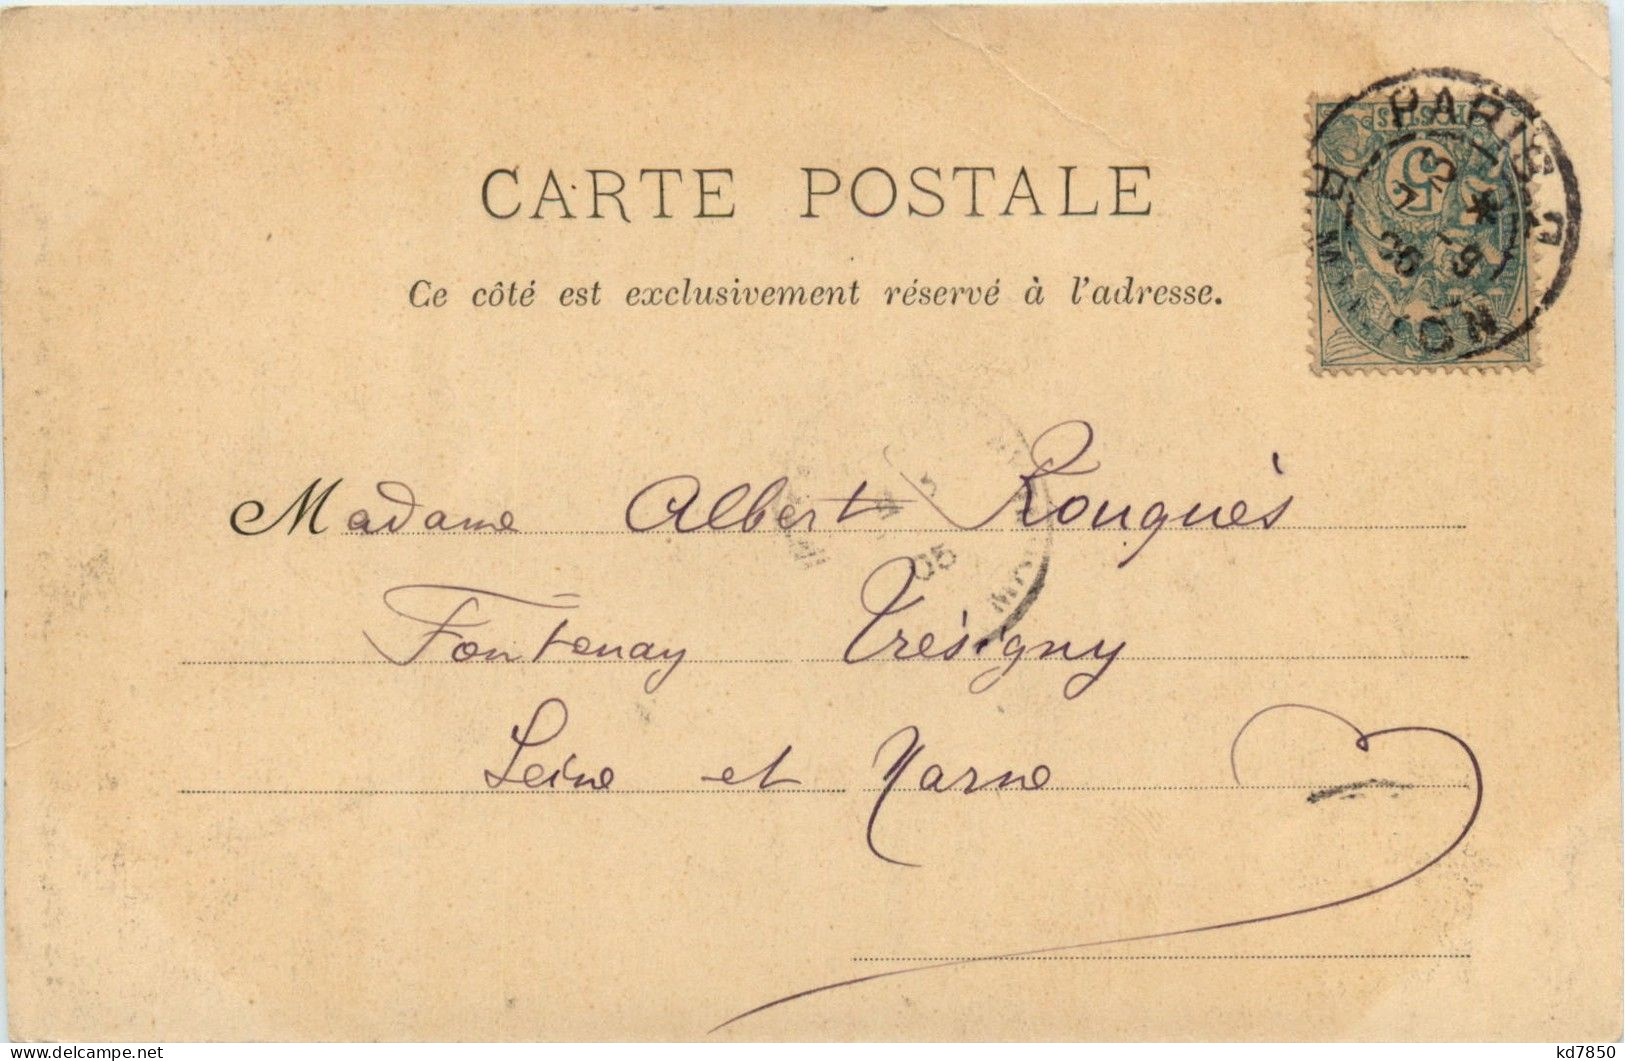 CARTE POSTALE
Ce côté est exclusivement réservé à l'adresse.
PARIS
5
Madame Albert Rouquès
Fontenay Trésigny
Seine et Marne
05
kd7850